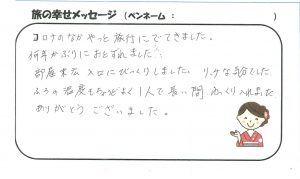 旅の幸せメッセージ (ペンネーム : )
コロナのなかやっと旅行にでてきました。
何年かぶりにおとずれました。
部屋 入口にびっくりしました。リッチな宿でした。
ふろの温度もちょうどよく1人で長い間 ゆっくり入れました
ありがとうございました。